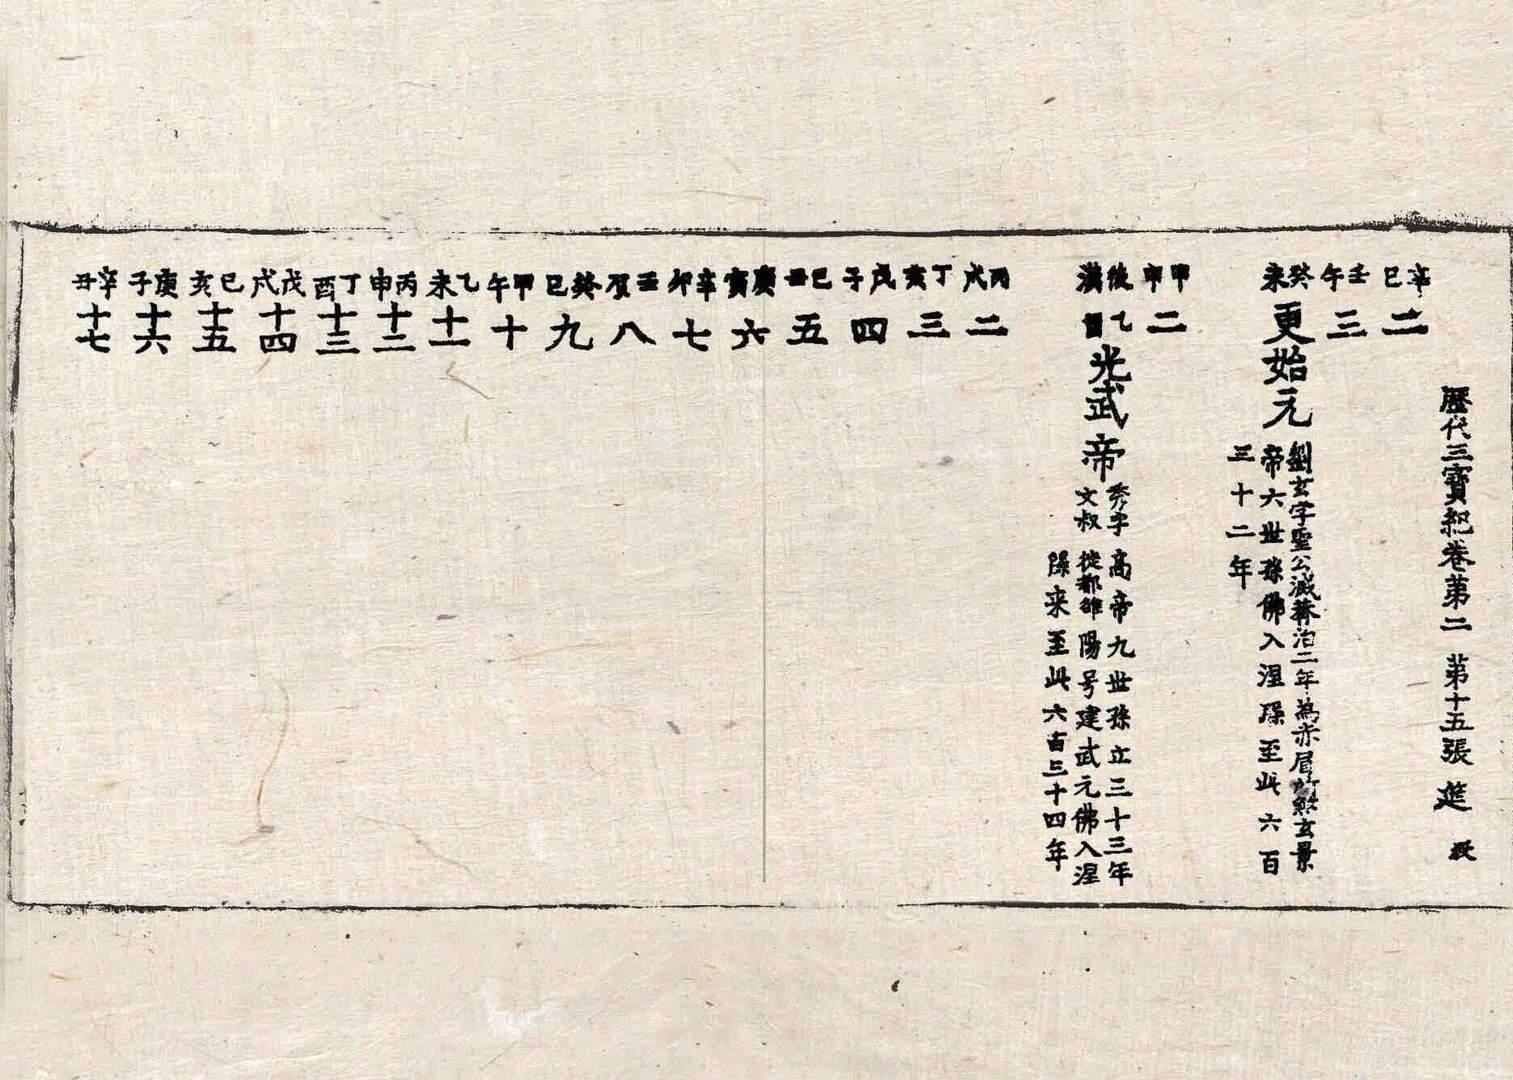 歷代三寶紀卷第二 第十五張 莚
辛巳 二
壬午 三
癸未 更始元
劉玄字聖公滅莽治二年為赤眉所煞玄景
帝六世孫佛入涅槃至此六百
三十二年
甲申 二
後漢 乙酉 光武帝
秀字
文叔
高帝九世孫立三十三年
徙都雒陽号建武元佛入涅
槃来至此六百三十四年
丙戌 二
丁亥 三
戊子 四
己丑 五
庚寅 六
辛卯 七
壬辰 八
癸巳 九
甲午 十
乙未 十一
丙申 十二
丁酉 十三
戊戌 十四
己亥 十五
庚子 十六
辛丑 十七